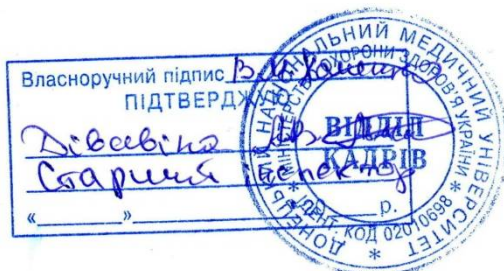 Власноручний підпис
ПІДТВЕРДЖУЮ
Старший інспектор
«______»____________20____р.
ДОНЕЦЬКИЙ НАЦІОНАЛЬНИЙ МЕДИЧНИЙ УНІВЕРСИТЕТ
МІНІСТЕРСТВО ОХОРОНИ ЗДОРОВ'Я УКРАЇНИ
ІДЕНТ. КОД 02010698
ВІДДІЛ
КАДРІВ